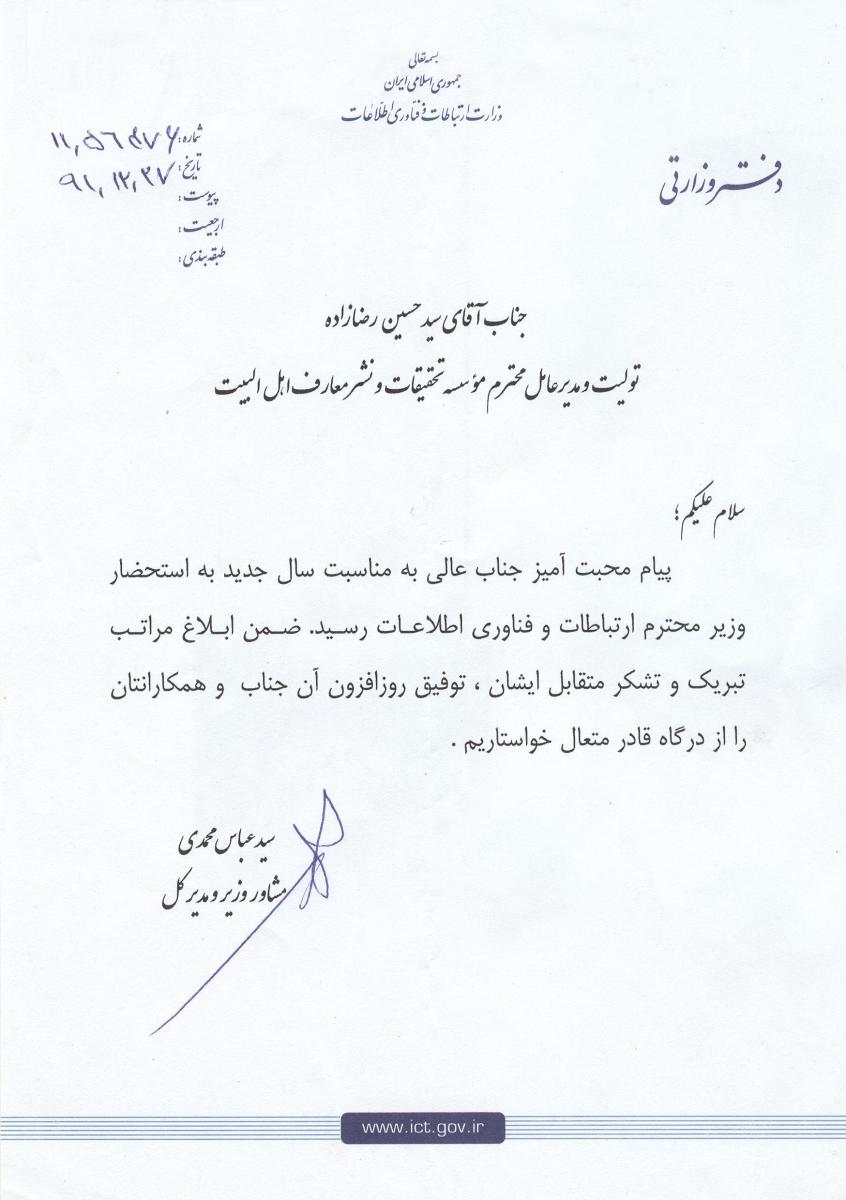 بسمه تعالی
جمهوری اسلامی ایران
وزارت ارتباطات و فناوری اطلاعات
دفتر وزارتی
شماره:
تاریخ: ۹۱,۱۲,۲۷
پیوست:
ارجعیت:
طبقه بندی:
جناب آقای سید حسین رضازاده
تولیت و مدیر عامل محترم مؤسسه تحقیقات و نشر معارف اهل البیت
سلام علیکم؛
پیام محبت آمیز جناب عالی به مناسبت سال جدید به استحضار
وزیر محترم ارتباطات و فناوری اطلاعات رسید. ضمن ابلاغ مراتب
تبریک و تشکر متقابل ایشان ، توفیق روزافزون آن جناب و همکارانتان
را از درگاه قادر متعال خواستاریم .
سید عباس محمدی
مشاور وزیر و مدیر کل
www.ict.gov.ir